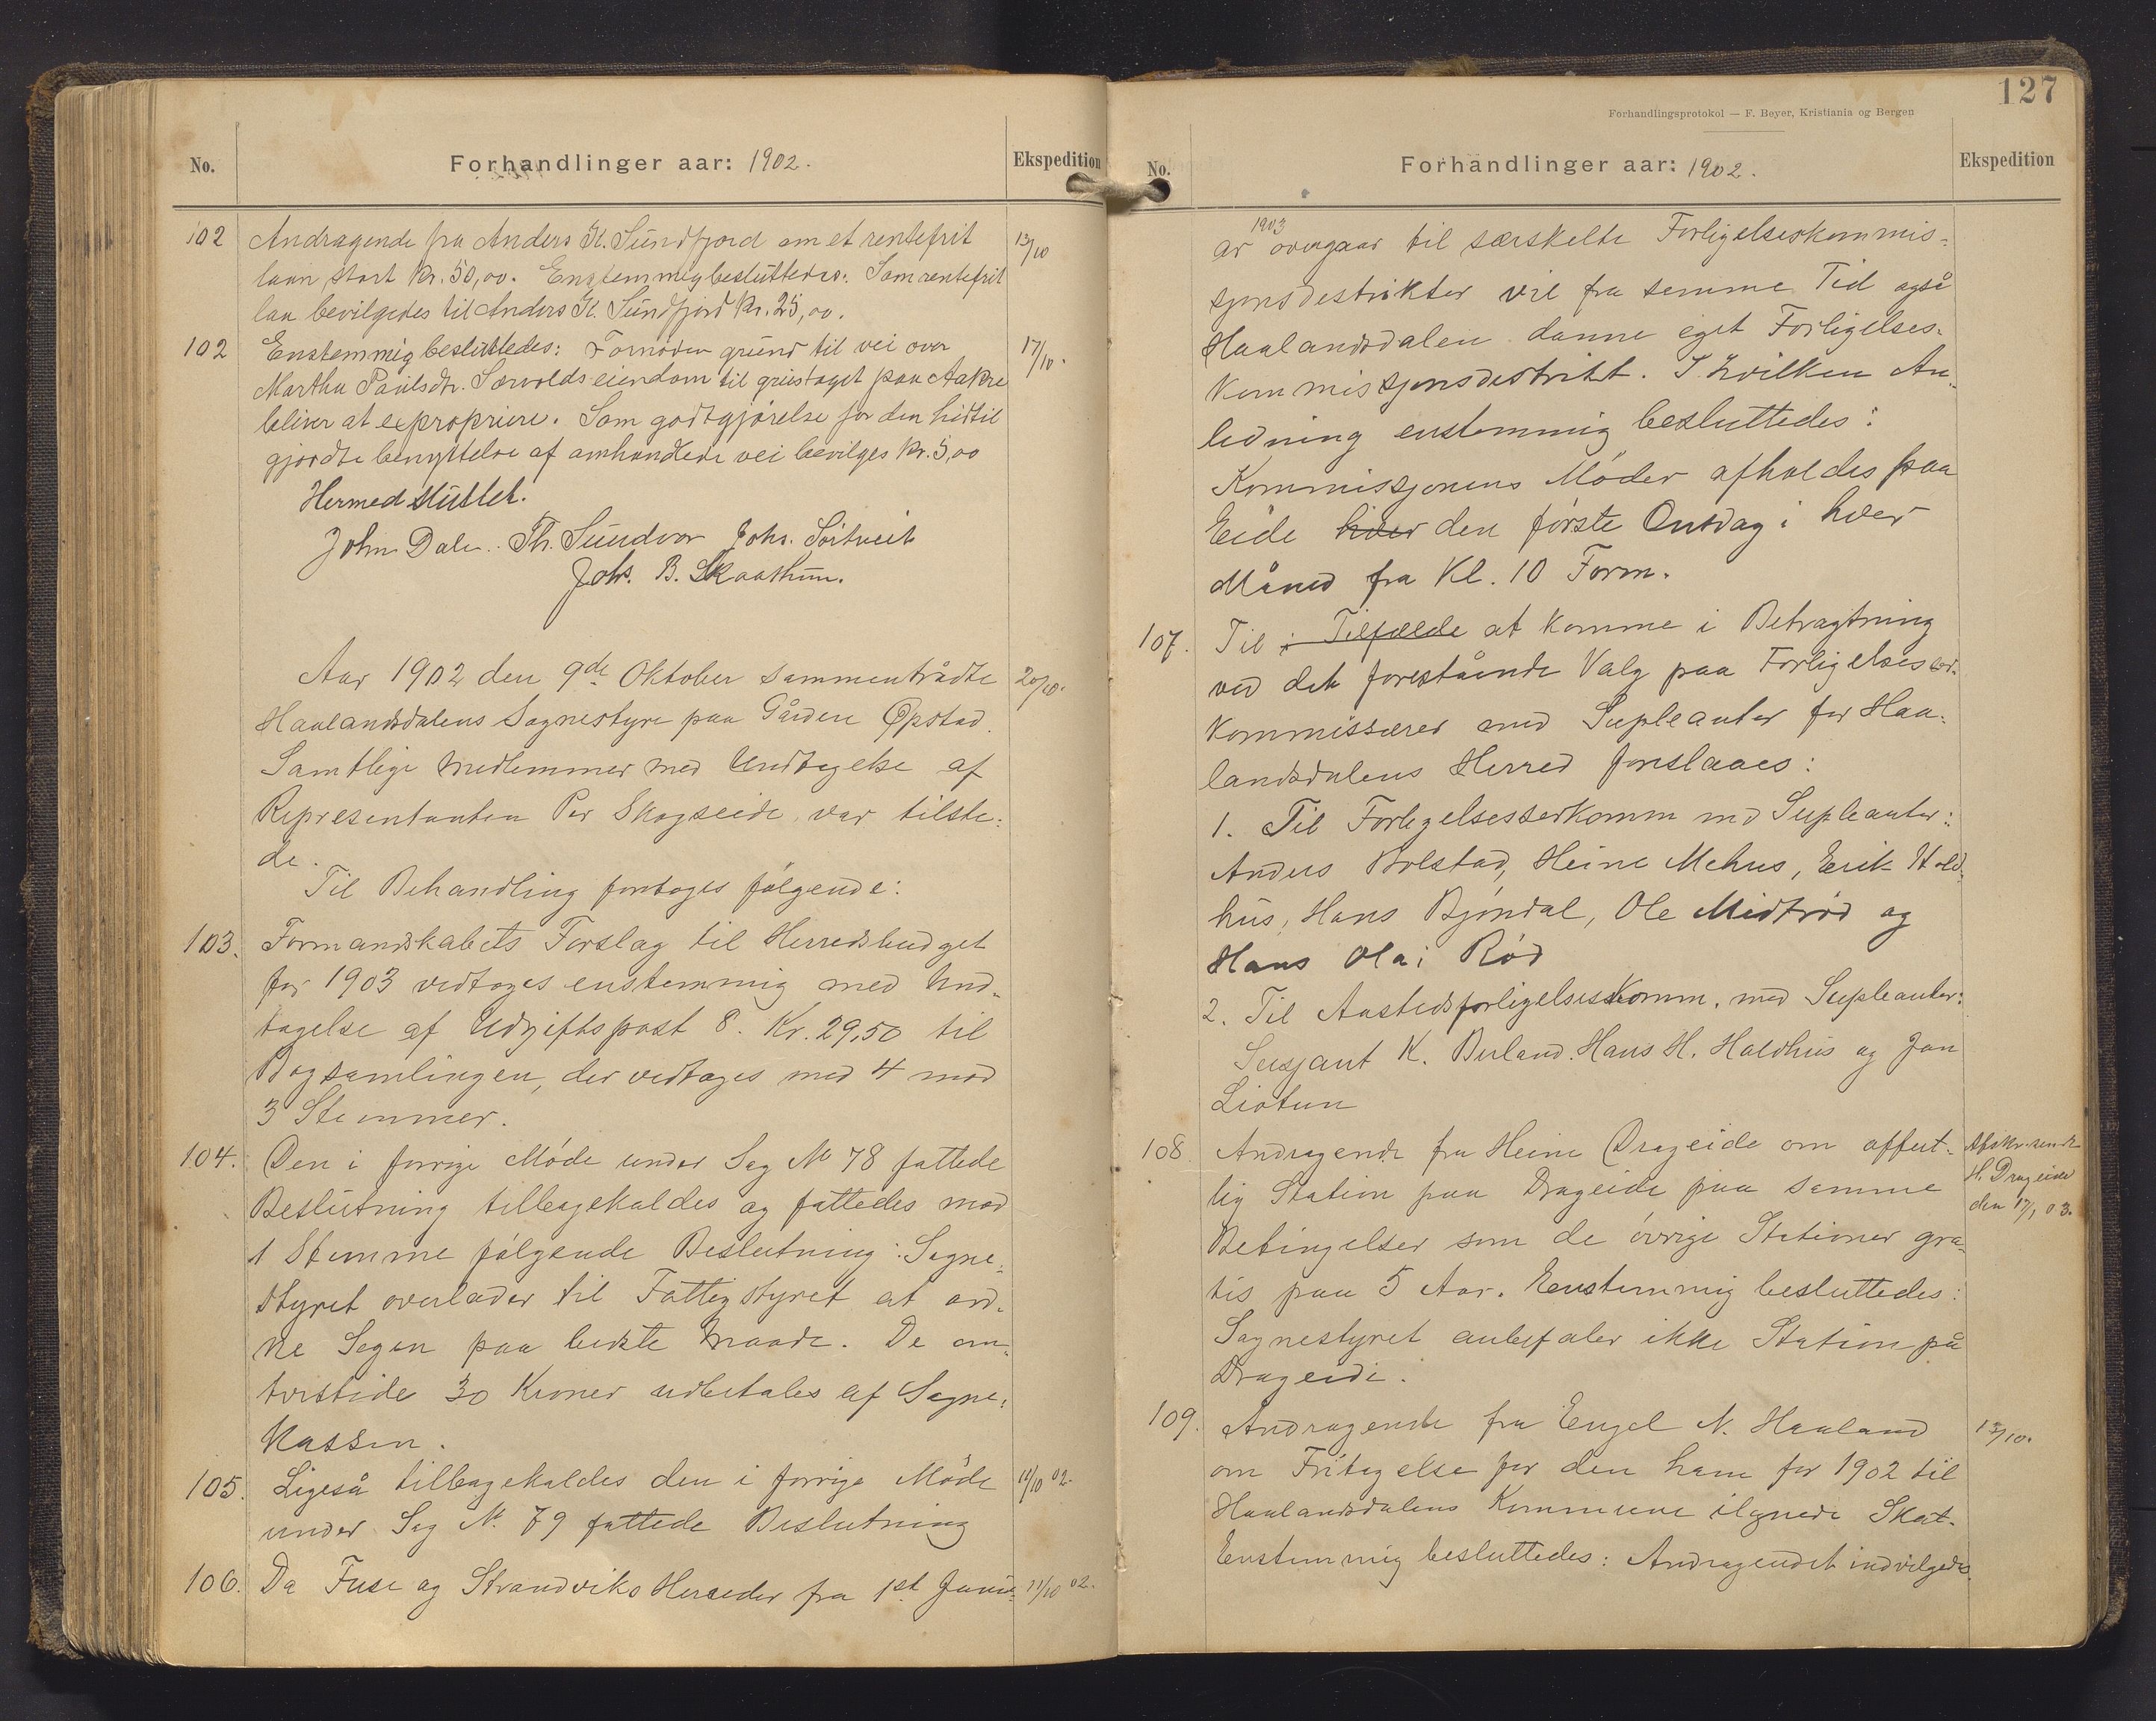 No.
Forhandlinger aar: 1902.
Ekspedition
102 Andragende fra Anders K. Sundfjord om et rentefrit 13/10
laan stort kr. 50,00. Enstemmig besluttedes: Som rentefrit
laan bevilgedes til Anders K. Sundfjord kr. 25,00.
102 Enstemmig besluttedes: Fornøden grund til vei over 17/10.
Martha Paulsdtr. Sævolds eiendom til grustaget paa Aakre
bliver at expropriere. Som godtgjørelse for den hidtil
gjordte benyttelse af omhandlede vei bevilges kr. 5,00
Hermed sluttet.
John Dale. Th. Sundvor Johs. Sörtveit
Johs. B. Skaathun.
Aar 1902 den 9de Oktober sammentrådte 20/10.
Haalandsdalens Sognestyre paa Gården Øpstad.
Samtlige Medlemmer med Undtagelse af
Representanten Per Skogseide var tilste-
de.
Til Behandling foretoges følgende:
103. Formandskabets Forslag til Herredsbudget
for 1903 vedtoges enstemmig med Und-
tagelse af Udgiftspost 8. Kr. 29,50 til
Bogsamlingen, der vedtoges med 4 mod
3 Stemmer.
104. Den i forrige Møde under Sag No 78 fattede
Beslutning tilbagekaldes og fattedes mod
1 Stemme følgende Beslutning: Sogne-
styret overlader til Fattigstyret at ord-
ne Sagen paa bedste Maade. De om-
tvistede 30 Kroner udbetales af Sogne-
kassen.
105. Ligeså tilbagekaldes den i forrige Møde 11/10 02.
under Sag No. 79 fattede Beslutning
106. Da Fuse og Strandviks Herreder fra 1st Janu- 11/10 02.
127
Forhandlingsprotokol — F. Beyer, Kristiania og Bergen
No.
Forhandlinger aar: 1902.
Ekspedition
1903
ar overgaar til særskelte Forligelseskommis-
sjonsdestrikter vil fra samme Tid også
Haalandsdalen danne eget Forligelses-
kommissjonsdestrikt. I hvilken An-
ledning enstemmig besluttedes:
Kommissjonens Møder afholdes paa
Eide hver den første Onsdag i hver
Måned fra Kl. 10 Form.
107. Til i Tilfælde at komme i Betragtning
ved det forestående Valg paa Forligelses-
kommissærer med Supleanter for Haa-
landsdalens Herred foreslaaes:
1. Til Forligelsesserkomm md Supleanter:
Anders Bolstad, Heine Mehus, Erik Hold-
hus, Hans Bjöndal, Ole Midtröd og
Hans Olai Röd
2. Til Aastedsforligelseskomm. med Supleanter:
Sersjant K. Berland. Hans H. Holdhus og Jon
Liotun
108. Andragende fra Heine Drageide om offent- Afskr. sendt
lig Station paa Drageide paa samme H. Drageide
Betingelser som de övrige Stationer gra- den 17/1 03.
tis paa 5 Aar. Eenstemmig besluttedes:
Sognestyret anbefaler ikke Station på
Drageide.
109. Andragende fra Engel N. Haaland 13/10.
om Fritagelse for den ham for 1902 til
Haalandsdalens Kommune ilignede Skat.
Enstemmig besluttedes: Andragendet indvilgedes.